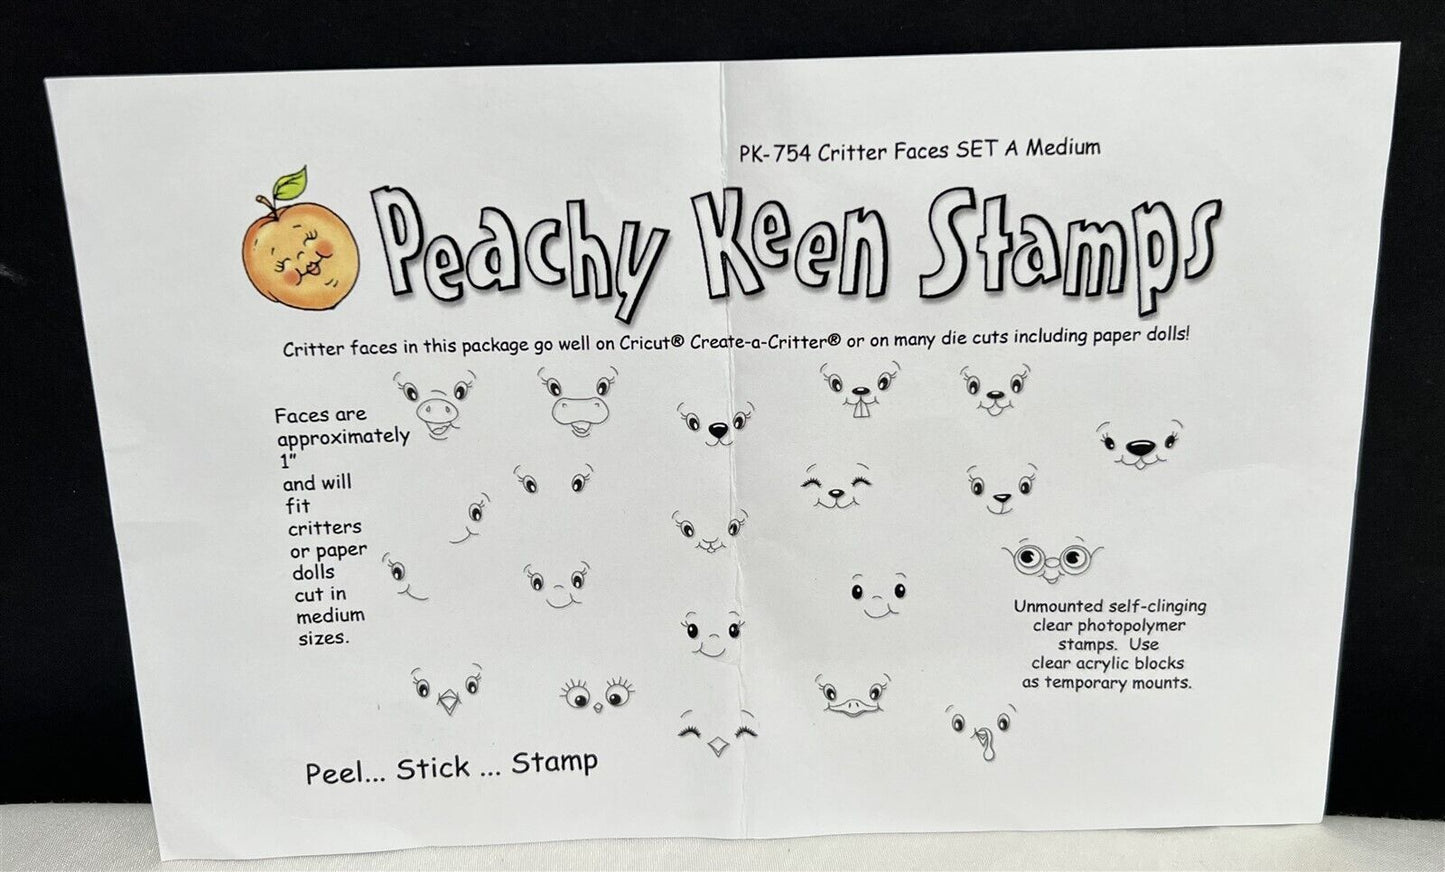 PK-754 Critter Faces SET A Medium
Peachy Keen Stamps
Critter faces in this package go well on Cricut® Create-a-Critter® or on many die cuts including paper dolls!
Faces are
approximately
1"
and will
fit
critters
or paper
dolls
cut in
medium
sizes.
Unmounted self-clinging
clear photopolymer
stamps. Use
clear acrylic blocks
as temporary mounts.
Peel... Stick ... Stamp